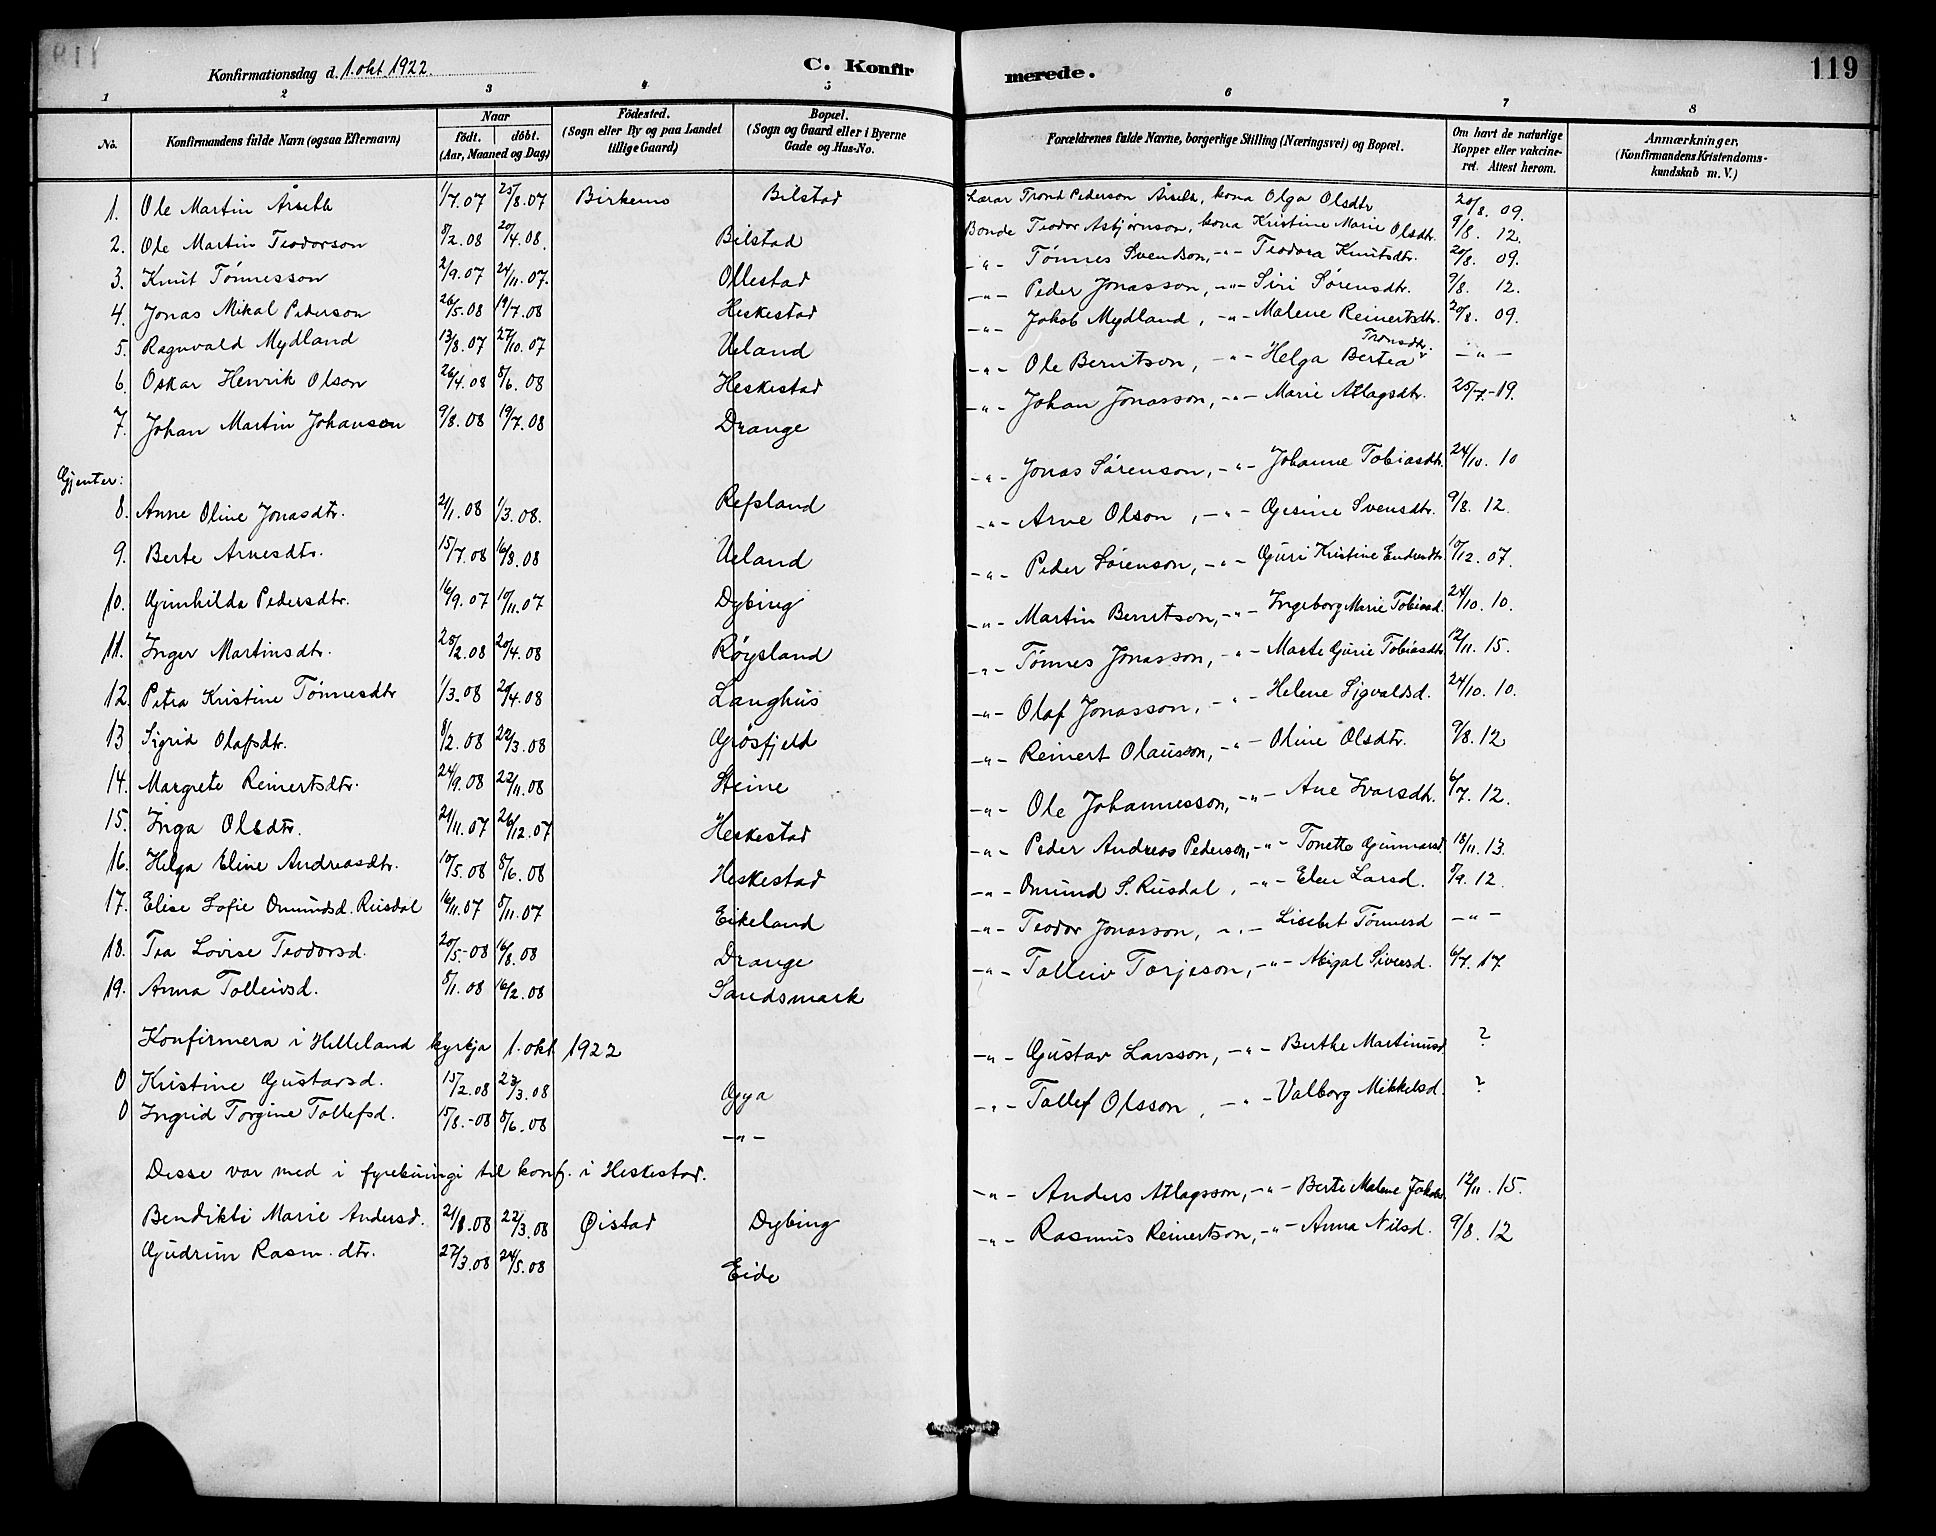 Konfirmationsdag d. 1. okt. 1922.
C. Konfirmerede.
119
1 2 3 4 5 6 7 8
No.
Konfirmandens fulde Navn (ogsaa Efternavn)
Naar
födt. döbt.
(Aar, Maaned og Dag)
Födested.
(Sogn eller By og paa Landet
tillige Gaard)
Bopæl.
(Sogn og Gaard eller i Byerne
Gade og Hus-No.
Forældrenes fulde Navne, borgerlige Stilling (Næringsvei) og Bopæl.
Om havt de naturlige
Kopper eller vakcine-
ret. Attest herom.
Anmærkninger.
(Konfirmandens Kristendoms-
kundskab m. V.)
1. Ole Martin Årseth 1/7.07 25/8.07 Birkemo Bilstad Lærar Trond Pederson Årseth, kona Olga Olsdtr 20/8. 09.
2. Ole Martin Teodorson 8/2.08 20/4.08. Bilstad Bonde Teodor Asbjørnson, kona Kristine Marie Olsdtr. 9/8. 12.
3. Knut Tönnesson 2/9.07 24/11.07. Ollestad -"- Tönnes Svendson, -"- Teodora Knutsdtr. 20/8. 09.
4. Jonas Mikal Pederson 26/5.08 19/7.08 Heskestad -"- Peder Jonasson, -"- Siri Sörensdtr. 9/8. 12.
5. Ragnvald Mydland 13/8.07 27/10.07 Ueland -"- Jakob Mydland, -"- Malene Reinertsdtr. 20/8. 09.
6. Oskar Henrik Olson 26/4.08 8/6.08 Heskestad -"- Ole Berntson, -"- Helga Bertea Tronsdtr. -"-
7. Johan Martin Johanson 9/8.08 19/7.08 Drange -"- Johan Jonasson, -"- Marie Atlagsdtr. 25/7.-19.
Gjenter:
8. Anne Oline Jonasdtr. 21/1.08 1/3.08. Refsland -"- Jonas Sörenson, -"- Johanne Tobiasdtr. 24/10. 10
9. Berte Arnesdtr. 15/7.08 16/8.08 Ueland -"- Arne Olson, -"- Gjesine Svensdtr. 9/8. 12.
10. Gunhilda Pedersdtr. 16/9.07 10/11.07 Dybing -"- Peder Sörenson, -"- Guri Kristine Endresdtr. 10/12. 07.
11. Inger Martinsdtr. 25/2.08 20/4.08 Röysland -"- Martin Berntson, -"- Ingeborg Marie Tobiasd. 24/10. 10.
12. Petra Kristine Tönnesdtr 1/3.08 20/4.08 Langhus -"- Tönnes Jonasson, -"- Marte Gurie Tobiasdtr. 12/11. 15.
13 Sigrid Olafsdtr. 8/2.08 22/3.08 Gösfjeld -"- Olaf Jonasson, -"- Helene Sigvaldsd. 24/10. 10.
14. Margrete Reinertsdtr. 24/9.08 22/11.08 Steine -"- Reinert Olausson, -"- Oline Olsdtr. 9/8. 12
15. Inga Olsdtr. 21/11.07 26/12.07 Heskestad -"- Ole Johannesson, -"- Ane Ivarsdtr. 6/7. 12.
16. Helga Eline Andreasdtr. 10/5.08 8/6.08 Heskestad -"- Peder Andreas Pederson, -"- Tonette Gunnarsd. 18/11. 13.
17. Elise Sofie Omundsd. Rusdal 16/11.07 8/11.07 Eikeland -"- Omund S. Rusdal, -"- Elen Larsd. 8/9. 12.
18. Tea Lovise Teodorsd. 20/5.-08 16/8.08 Drange -"- Teodor Jonasson, -"- Lisebet Tönnesd -"-
19. Anna Tolleivsd. 8/1.08 16/2.08 Sandsmark -"- Tolleiv Torjeson, -"- Abigal Siversd. 6/7. 17
Konfirmera i Helleland kyrkja 1. okt 1922
0 Kristine Gustavsd. 15/2.08 23/3.08 Gya -"- Gustav Larsson, -"- Berthe Martinusd ?
0 Ingrid Torgine Tollefsd. 15/8.-08 8/6.08 -"- -"- Tollef Olsson, -"- Valborg Mikkelsd. ?
Desse var med i fyrebuingi til konf. i Heskestad.
Bendikti Marie Andersd. 21/1.08 22/3.08 Øistad Dybing -"- Anders Atlagsson, -"- Berte Malene Jakobs. 12/11. 15.
Gudrun Rasm. dtr. 27/3.08 24/5.08 Eide -"- Rasmus Reinertson, -"- Anna Nilsd. 9/8. 12